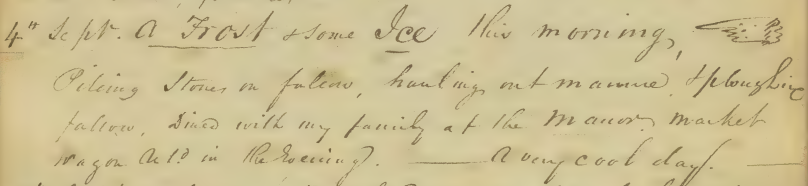 4th Sept. A Frost & some Ice this morning,
Pileing Stones on fallow, hauling out manure, & ploughing
fallow, Dined with my family at the Manor. market
wagon in the Evening. — A very cool day. —